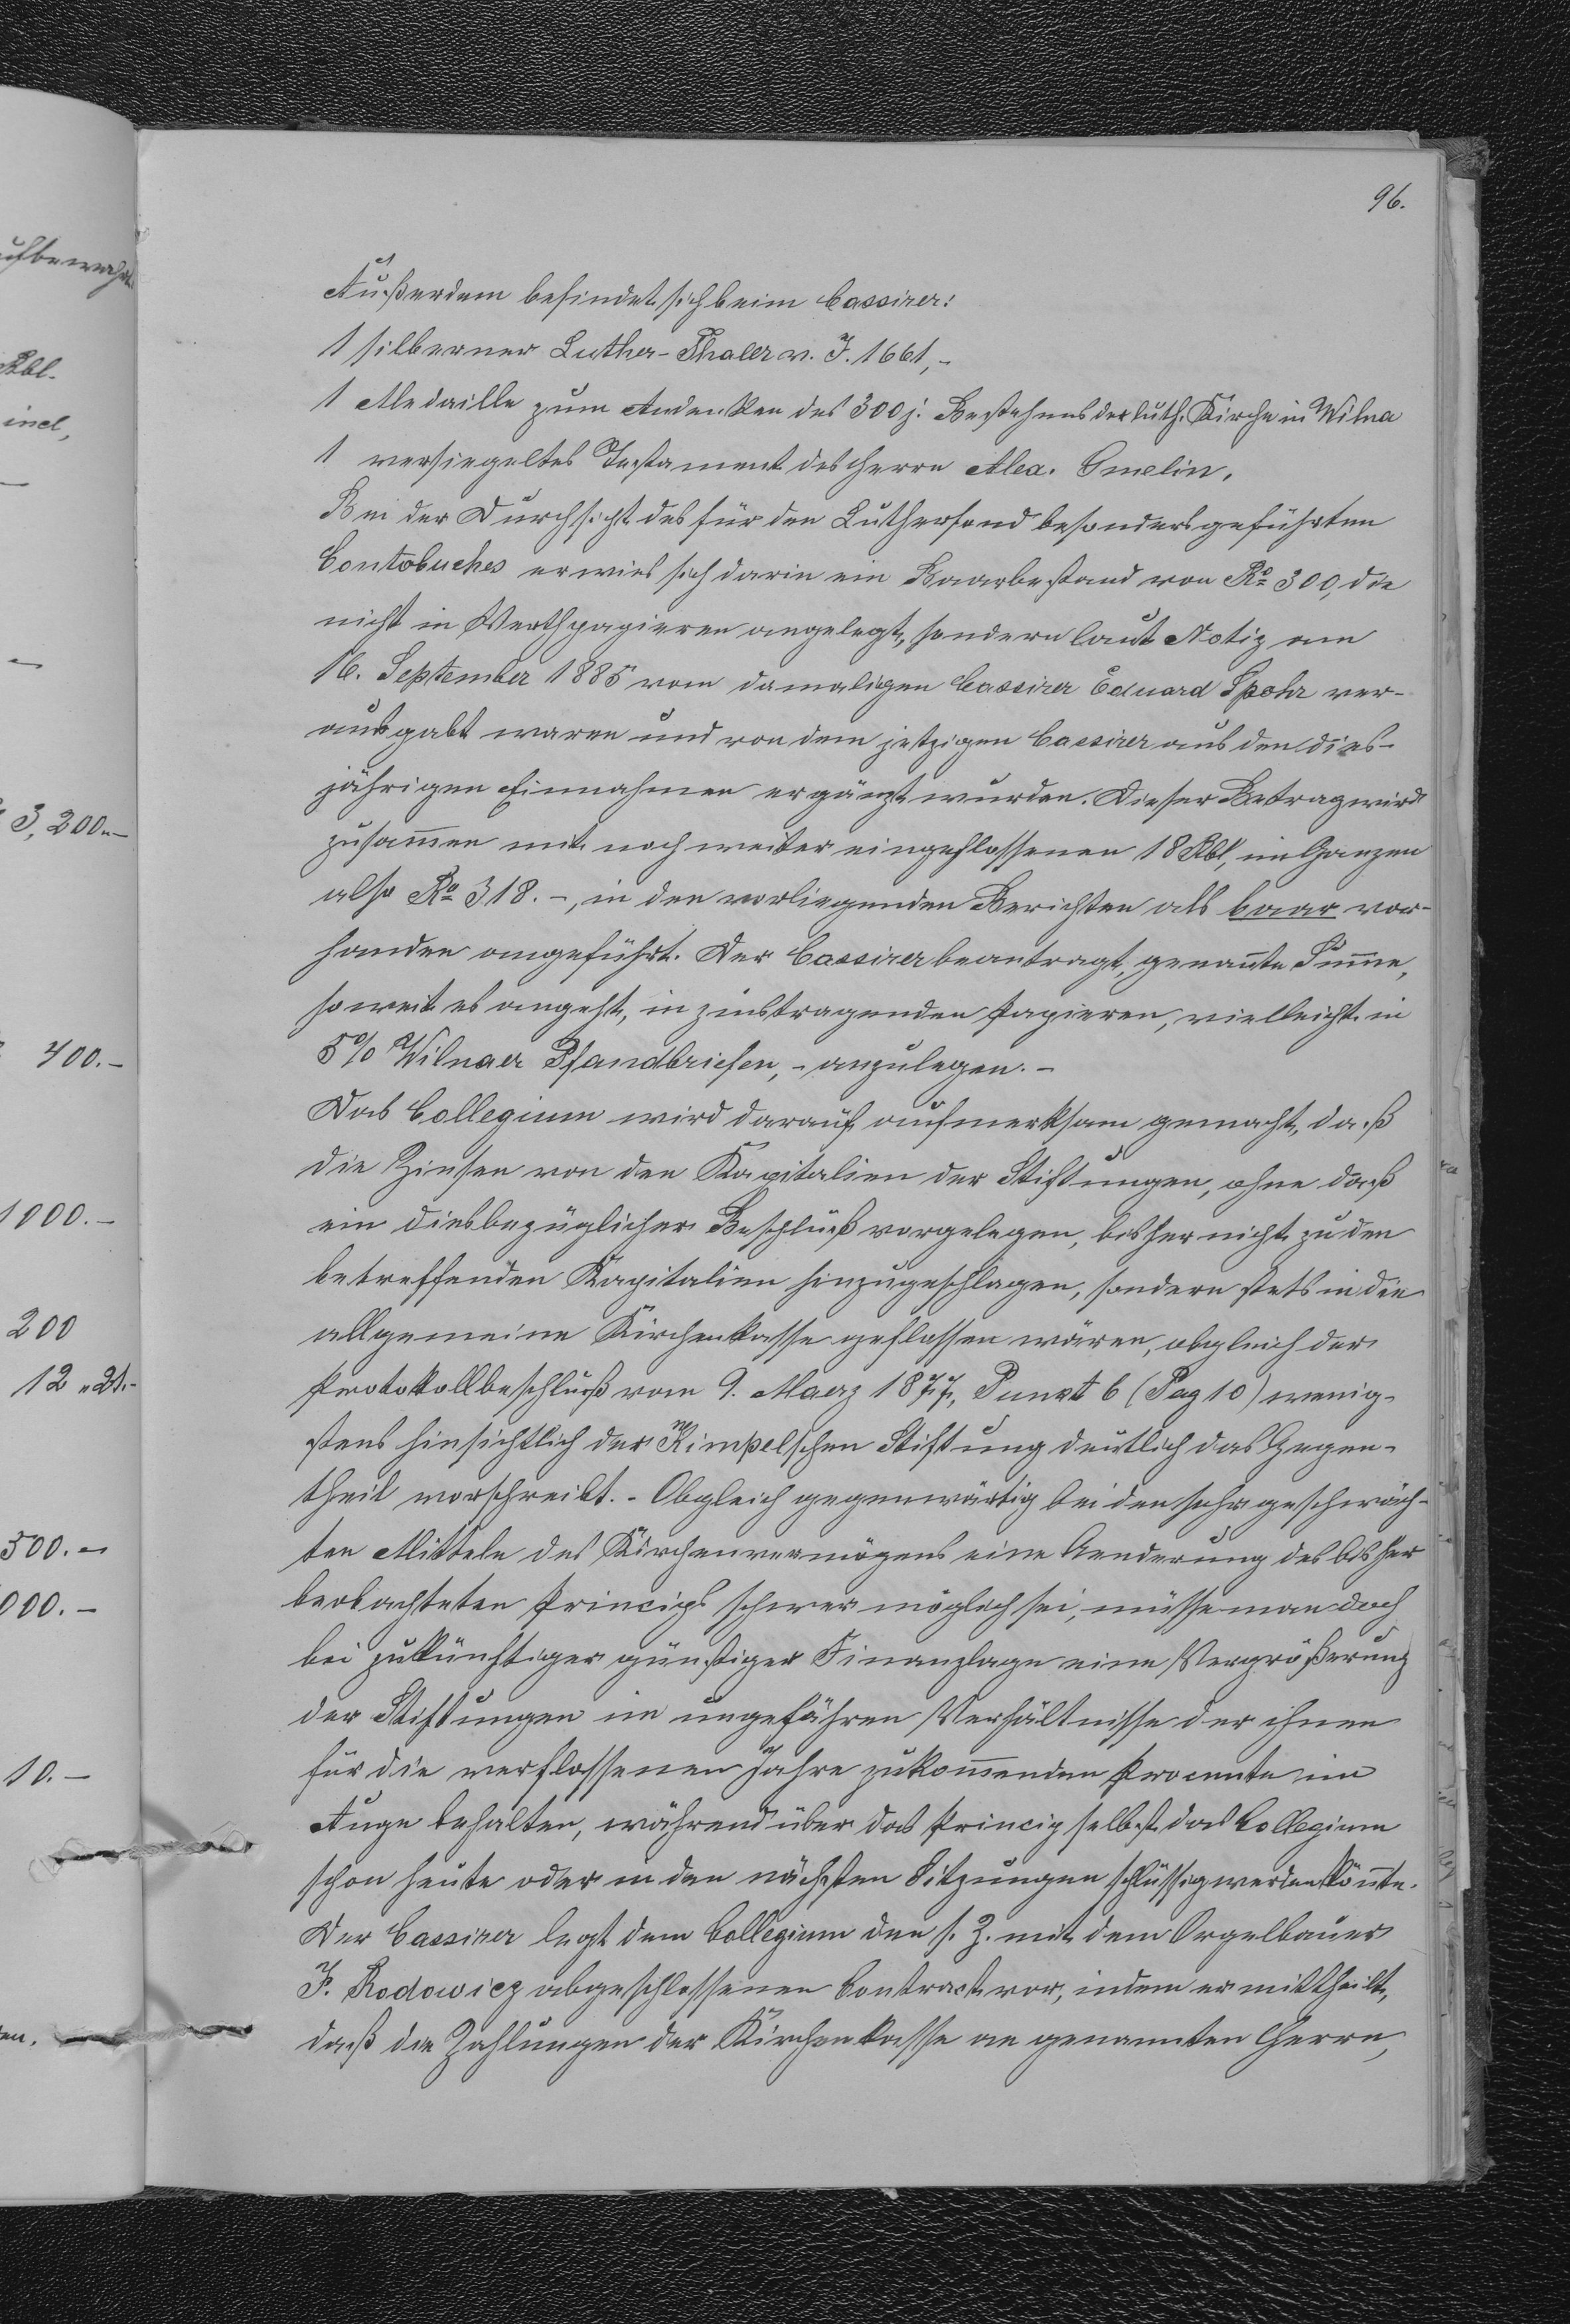 96.
Außerdem befindet sich beim Cassirer:
1 silberner Luther-Thaler v. J. 1661,-
1 Medaille zum Andenken des 300 j. Bestehens der luth. Kirche in Wilna
1 versiegeltes Testament des Herrn Alex. Gmelin.
Bei der Durchsicht des für den Lutherfond besonders geführten
Contobuches erwies sich darin ein Baarbestand von Ro 300, die
nicht in Werthpapieren angelegt, sondern laut Notiz am
16. September 1885 vom damaligen Cassirer Eduard Spohr ver-
ausgabt waren und von dem jetzigen Cassirer aus den dies-
jährigen Einnahmen ergänzt wurden. Dieser Betrag wird
zusam̅en mit noch weiter eingeflossenen 18 Rbl, im Ganzen
also Ro 318.-, in den vorliegenden Berichten als baar vor-
handen angeführt. Der Cassirer beantragt, genan̅te Sum̅e,
soweit es angeht, in zinstragenden Papieren, vielleicht in
5% Wilnaer Pfandbriefen, - anzulegen. -
Das Collegium wird darauf aufmerksam gemacht, daß
die Zinsen von den Kapitalien der Stiftungen, ohne daß
ein diesbezüglicher Beschluß vorgelegen, bisher nicht zu den
betreffenden Kapitalien hinzugeschlagen, sondern stets in die
allgemeine Kirchenkasse geflossen wären, obgleich der
Protokollbeschluß vom 9. Maerz 1877, Punct 6 (Pag 10) wenig-
stens hinsichtlich der Rimpelschen Stiftung deutlich das Gegen-
theil vorschreibt. - Obgleich gegenwärtig bei den sehr geschwäch-
ten Mitteln des Kirchenvermögens eine Aenderung des bisher
beobachteten Princips schwer möglich sei, müsse man doch
bei zukünftiger günstiger Finanzlage eine Vergrößerung
der Stiftungen im ungefähren Verhältnisse der ihnen
für die verflossenen Jahre zukom̅enden Procente im
Auge behalten, während über das Princip selbst das Collegium
schon heute oder in den nächsten Sitzungen schlüssig werden kön̅te.
Der Cassirer legt dem Collegium den s. Z. mit dem Orgelbauer
J. Rodowicz abgeschlossenen Contract vor, indem er mittheilt,
daß die Zahlungen der Kirchenkasse an genannten Herrn,
ufbewahrt
Rbl.
incl,
3,200.-
400.-
1000.-
200
12 "21.-
500.-
000.-
10.-
en.